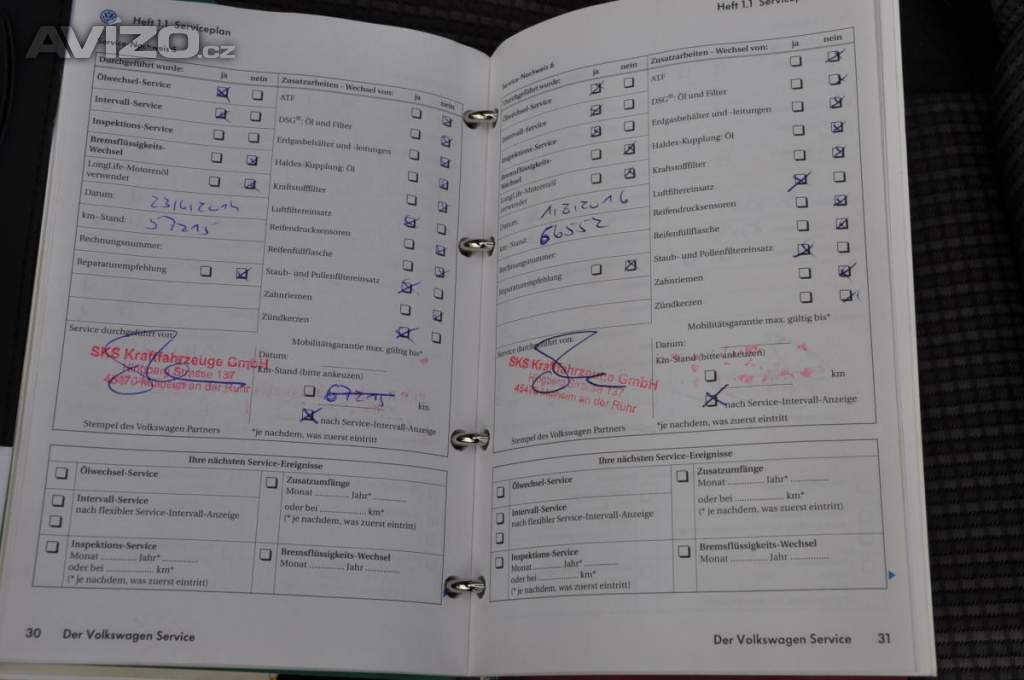 AVIZO.cz
Heft 1.1 Serviceplan
Service-Nachweis 5
Durchgeführt wurde:
ja
nein
Ölwechsel-Service
Intervall-Service
Inspektions-Service
Bremsflüssigkeits-
Wechsel
LongLife-Motorenöl
verwendet
Datum:
km-Stand:
57215
Rechnungsnummer:
Reparaturempfehlung
Zusatzarbeiten - Wechsel von:
ja
nein
ATF
DSG®: Öl und Filter
Erdgasbehälter und -leitungen
Haldex-Kupplung: Öl
Kraftstofffilter
Luftfiltereinsatz
Reifendrucksensoren
Reifenfüllflasche
Staub- und Pollenfiltereinsatz
Zahnriemen
Zündkerzen
Service durchgeführt von:
SKS Kraftfahrzeuge GmbH
Straße 137
45470 Mülheim an der Ruhr
Stempel des Volkswagen Partners
Mobilitätsgarantie max. gültig bis*
Datum:
Km-Stand (bitte ankeuzen)
67215
km
nach Service-Intervall-Anzeige
*je nachdem, was zuerst eintritt
Ihre nächsten Service-Ereignisse
Ölwechsel-Service
Intervall-Service
nach flexibler Service-Intervall-Anzeige
Inspektions-Service
Monat ............. Jahr* ............
oder bei .................. km*
(* je nachdem, was zuerst eintritt)
Zusatzumfänge
Monat ............. Jahr* ............
oder bei .................. km*
(* je nachdem, was zuerst eintritt)
Bremsflüssigkeits-Wechsel
Monat ............. Jahr ............
30 Der Volkswagen Service
Heft 1.1
Service-Nachweis 6
Durchgeführt wurde:
ja
nein
Ölwechsel-Service
Intervall-Service
Inspektions-Service
Bremsflüssigkeits-
Wechsel
LongLife-Motorenöl
verwendet
Datum:
km-Stand:
66552
Rechnungsnummer:
Reparaturempfehlung
Zusatzarbeiten - Wechsel von:
ja
nein
ATF
DSG®: Öl und Filter
Erdgasbehälter und -leitungen
Haldex-Kupplung: Öl
Kraftstofffilter
Luftfiltereinsatz
Reifendrucksensoren
Reifenfüllflasche
Staub- und Pollenfiltereinsatz
Zahnriemen
Zündkerzen
Service durchgeführt von:
SKS Kraftfahrzeuge GmbH
137
an der Ruhr
Stempel des Volkswagen Partners
Mobilitätsgarantie max. gültig bis*
Datum:
Km-Stand (bitte ankeuzen)
km
nach Service-Intervall-Anzeige
*je nachdem, was zuerst eintritt
Ihre nächsten Service-Ereignisse
Ölwechsel-Service
Intervall-Service
nach flexibler Service-Intervall-Anzeige
Inspektions-Service
Monat ............. Jahr* ............
oder bei .................. km*
(* je nachdem, was zuerst eintritt)
Zusatzumfänge
Monat ............. Jahr* ............
oder bei .................. km*
(* je nachdem, was zuerst eintritt)
Bremsflüssigkeits-Wechsel
Monat ............. Jahr ............
Der Volkswagen Service 31